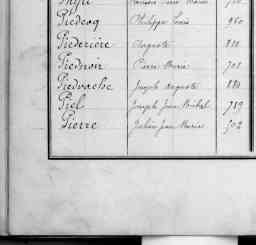 Piedcoq Philippe Louis 960
Piederière Auguste 810
Piednoir Pierre Marie 708
Piedvache Joseph Auguste 880
Piel Joseph Jean Michel 789
Pierre Julien Jean Marie 502